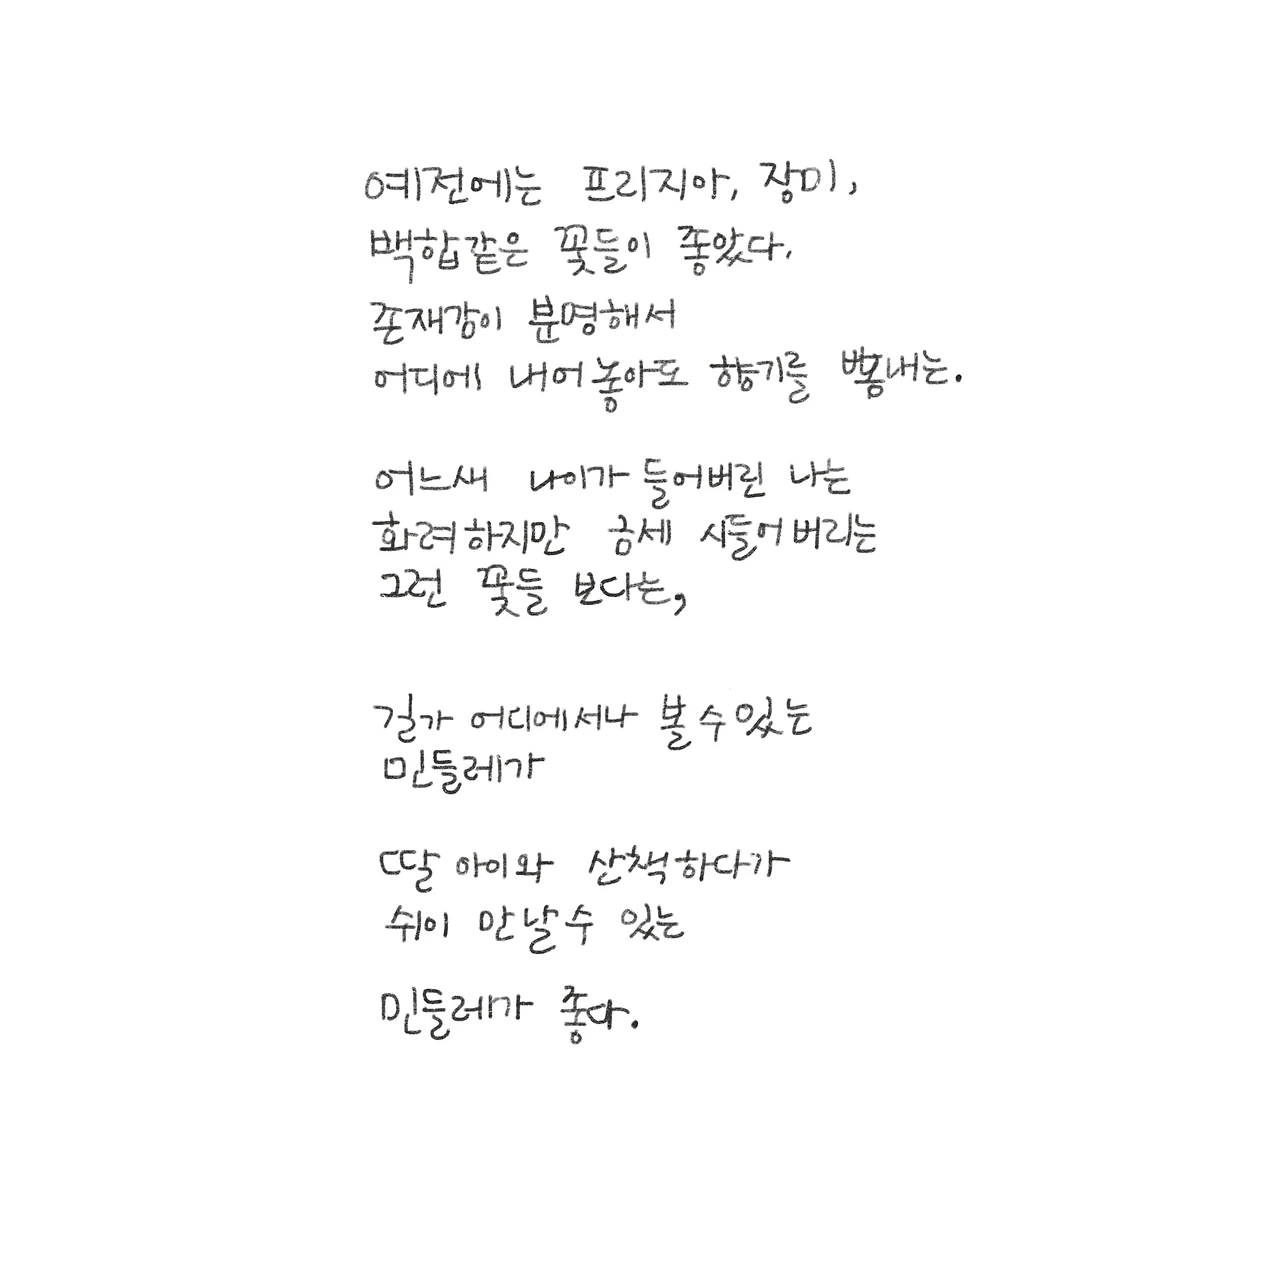 예전에는 프리지아, 장미,
백합같은 꽃들이 좋았다.
존재감이 분명해서
어디에 내어놓아도 향기를 뽐내는.
어느새 나이가 들어버린 나는
화려하지만 금세 시들어버리는
그런 꽃들 보다는,
길가 어디에서나 볼 수 있는
민들레가
딸 아이와 산책하다가
쉬이 만날 수 있는
민들레가 좋다.